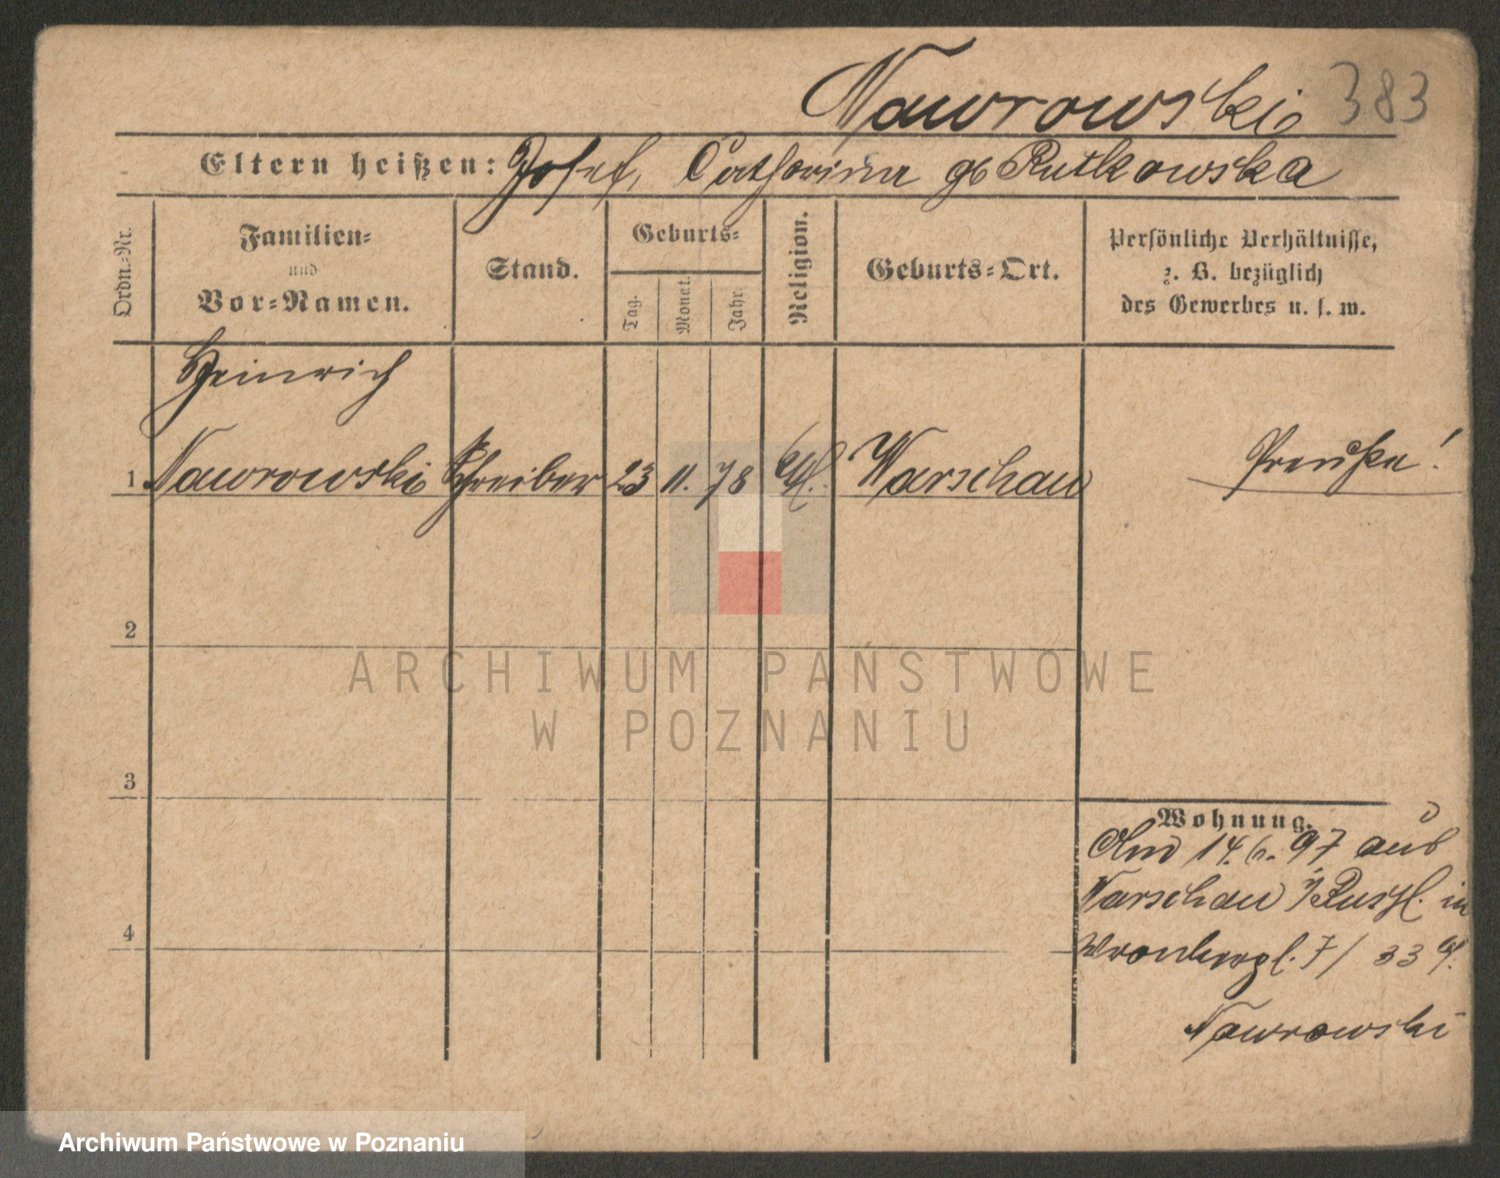 Nawrowski 383
Eltern heißen: Josef, Catharina gb Rutkowska
Ordn.-Nr.
Familien-
und
Vor-Namen.
Stand.
Geburts-
Tag.
Monat.
Jahr.
Religion.
Geburts-Ort.
Persönliche Verhältnisse,
z. B. bezüglich
des Gewerbes u. s. w.
Heinrich
1 Nawrowski Schreiber 23 11. 78 Warschau Preuße!
2
3
4
Wohnung.
14. 6. 97 aus
Warschau i/Russl. in
7/ 33
Nawrowski
ARCHIWUM PAŃSTWOWE
W POZNANIU
Archiwum Państwowe w Poznaniu